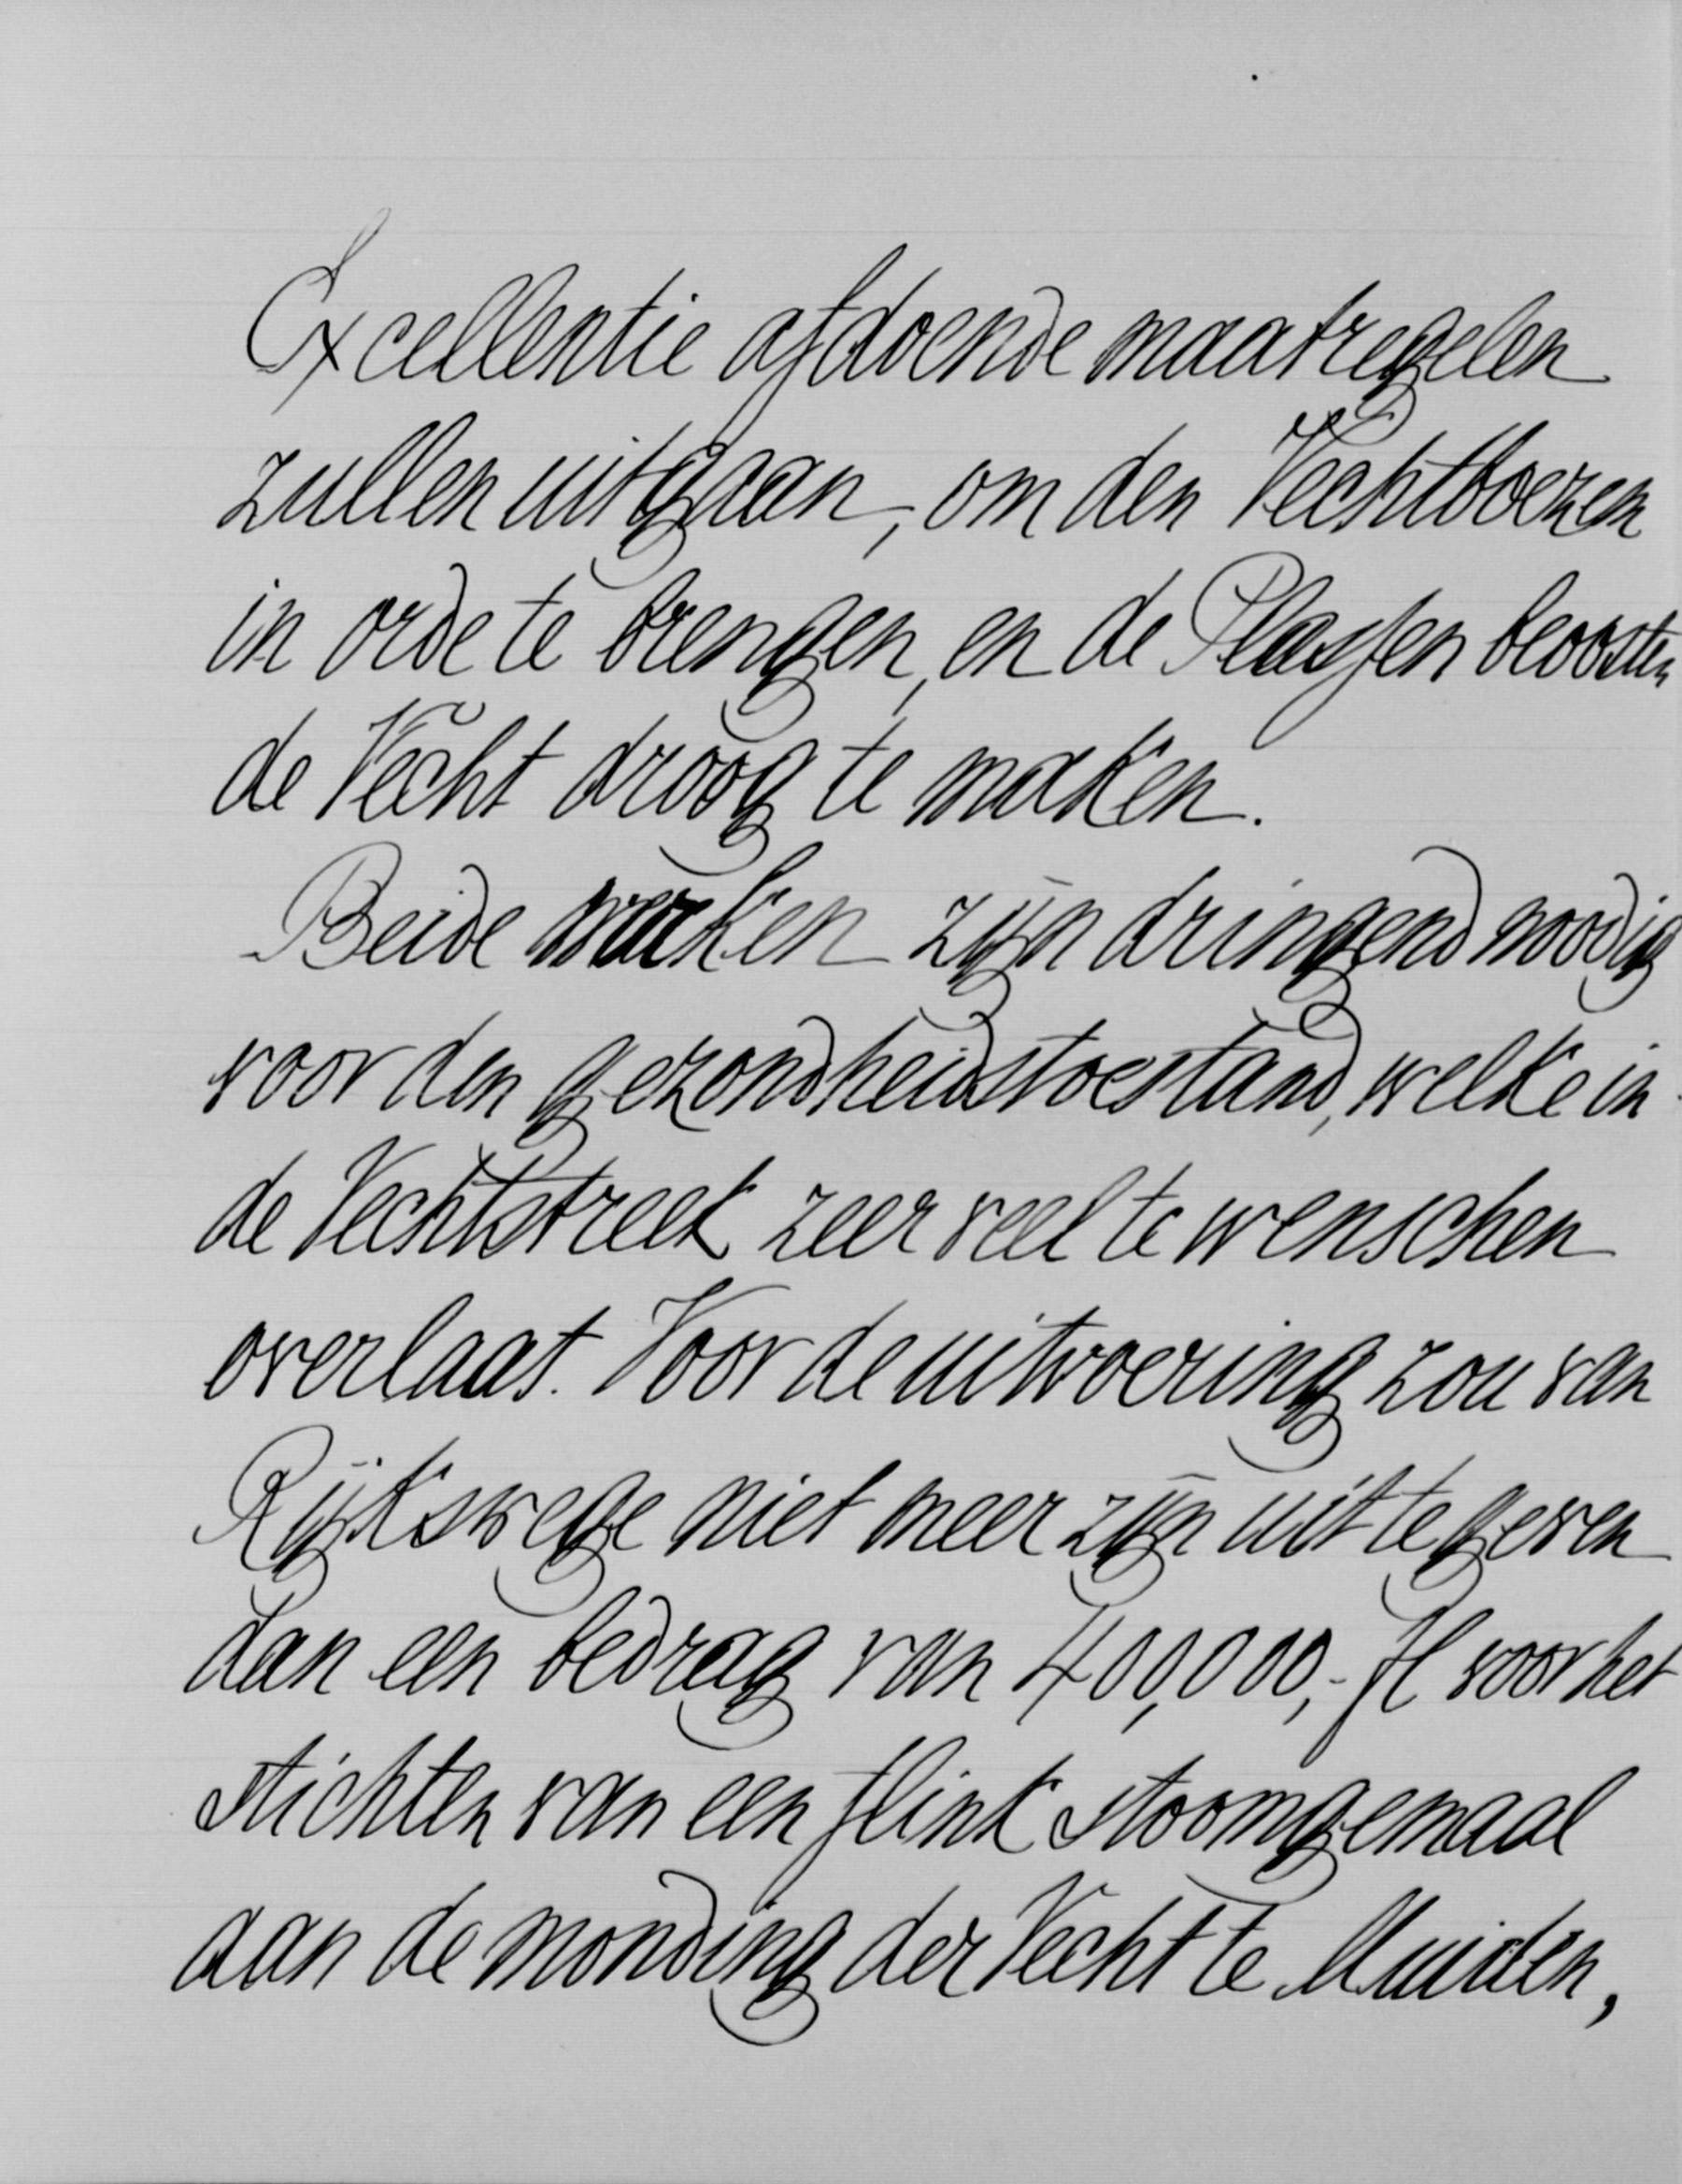 Excellentie afdoende maatregelen
zullen uitgaan, om den Vechtboezem
in orde te brengen, en de Plassen beoosten
de Vecht droog te maken.
Beide werken zijn dringend noodig
voor den gezondheidstoestand, welke in
de Vechtstreek zeer veel te wenschen
overlaat. Voor de uitvoering zou van
Rijkswege niet meer zijn uit te geven
dan een bedrag van 400,000,- fl voor het
stichten van een flink stoomgemaal
aan de monding der Vecht te Muiden,